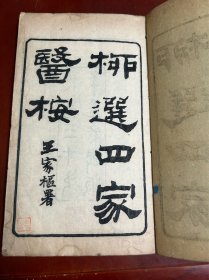 柳選四家
醫桉
王家樞署